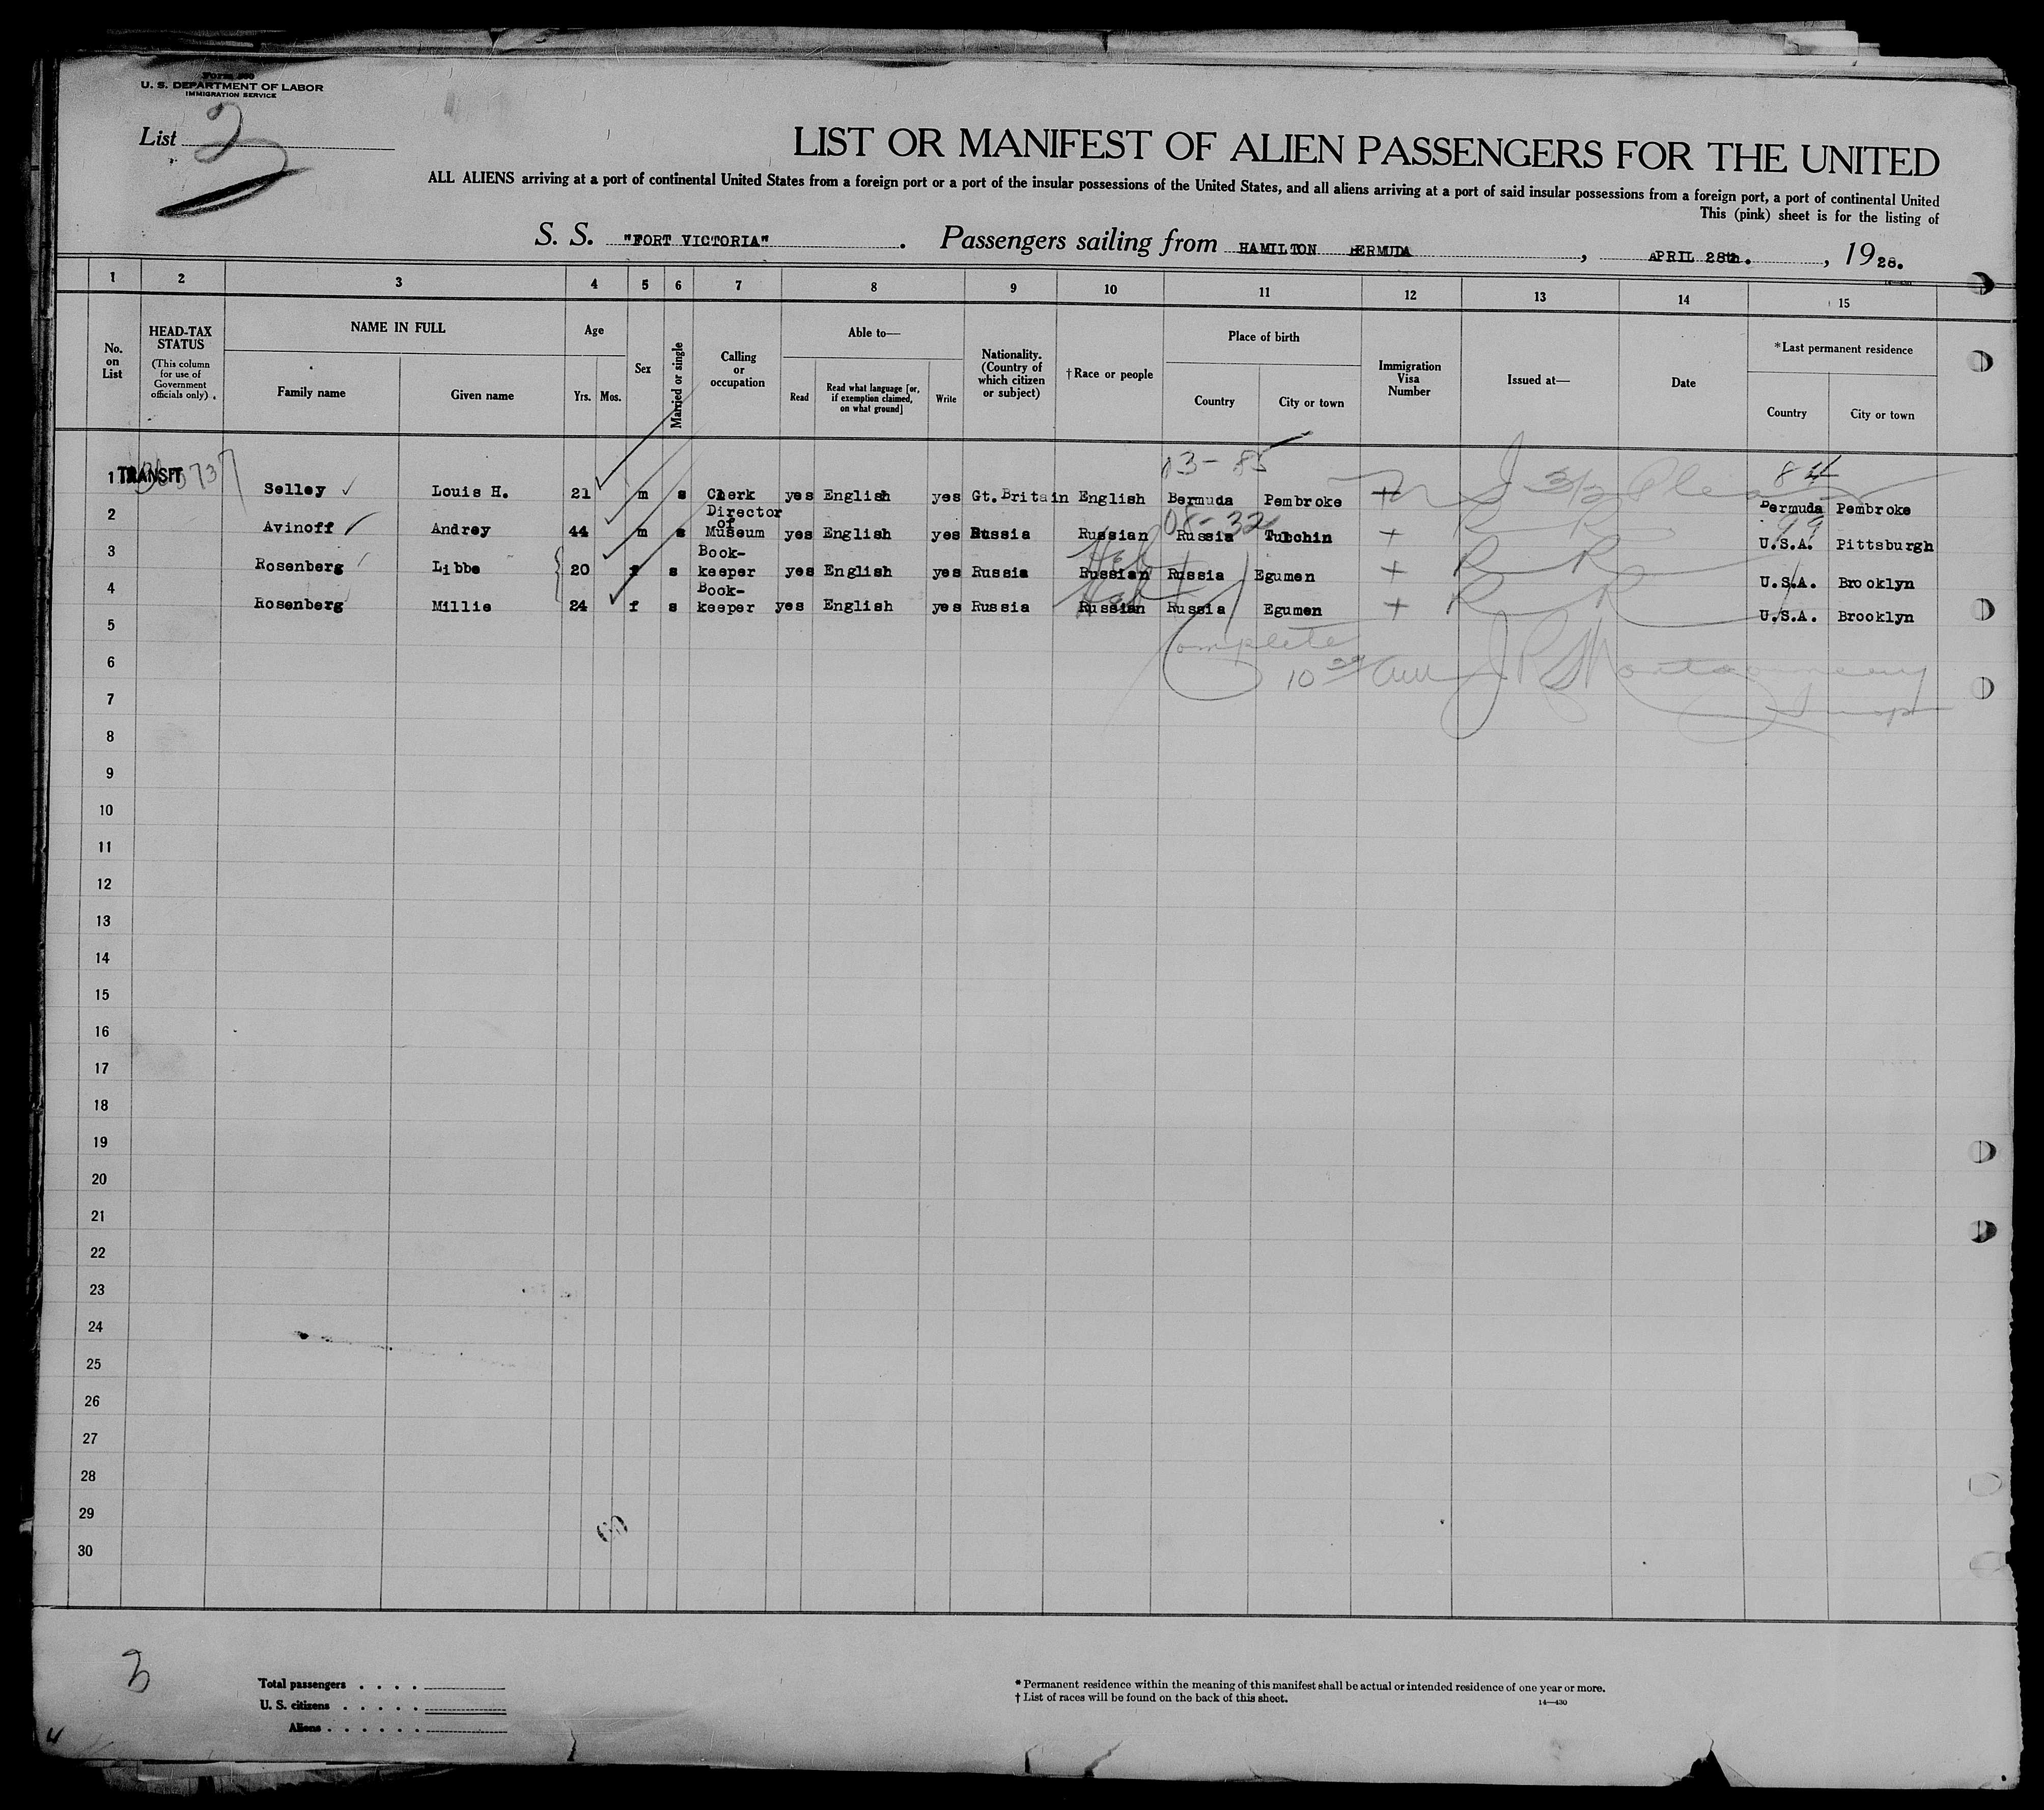 Form 500
U. S. DEPARTMENT OF LABOR
IMMIGRATION SERVICE
List 3
LIST OR MANIFEST OF ALIEN PASSENGERS FOR THE UNITED
ALL ALIENS arriving at a port of continental United States from a foreign port or a port of the insular possessions of the United States, and all aliens arriving at a port of said insular possessions from a foreign port, a port of continental United
This (pink) sheet is for the listing of
S. S. "FORT VICTORIA". Passengers sailing from HAMILTON BERMUDA, APRIL 28th., 1928.
1 2 3 4 5 6 7 8 9 10 11 12 13 14 15
No. on List
HEAD-TAX STATUS (This column for use of Government officials only).
NAME IN FULL
Family name Given name
Age
Yrs. Mos.
Sex
Married or single
Calling or occupation
Able to—
Read
Read what language [or, if exemption claimed, on what ground]
Write
Nationality. (Country of which citizen or subject)
†Race or people
Place of birth
Country City or town
Immigration Visa Number
Issued at—
Date
*Last permanent residence
Country City or town
03-85
1 TRANSIT Selley Louis H. 21 m s Clerk yes English yes Gt.Britain English Bermuda Pembroke Bermuda Pembroke
08-32
2 Avinoff Andrey 44 m s Director of Museum yes English yes Russia Russian Russia Tulchin + R R U.S.A. Pittsburgh
3 Rosenberg Libbe 20 f s Book-keeper yes English yes Russia Russian Heb Russia Egumen + R R U.S.A. Brooklyn
4 Rosenberg Millie 24 f s Book-keeper yes English yes Russia Russian Heb Russia Egumen + R R U.S.A. Brooklyn
5
Complete
6
7
8
9
10
11
12
13
14
15
16
17
18
19
20
21
22
23
24
25
26
27
28
29
30
3
Total passengers . . . .
U. S. citizens . . . . .
Aliens . . . . . .
* Permanent residence within the meaning of this manifest shall be actual or intended residence of one year or more.
† List of races will be found on the back of this sheet.
14—430